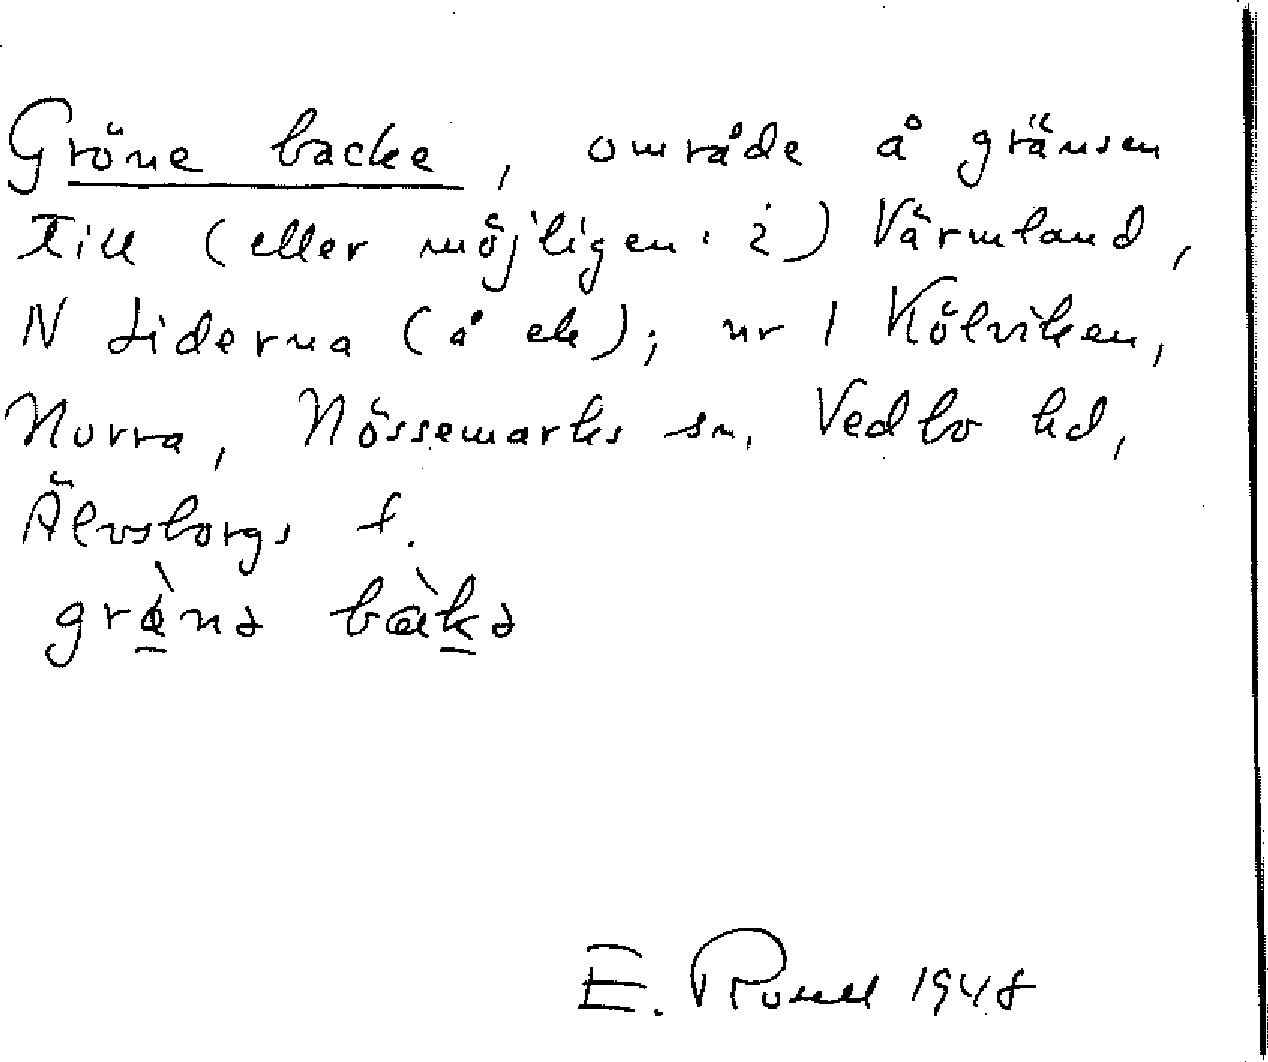 Gröne backe, område å gränsen
till (eller möjligen i) Värmland,
N Liderna (å ek); nr 1 Kölviken,
Norra, Nössemarks sn, Vedbo hd,
Älvsborgs l.
E. 1948